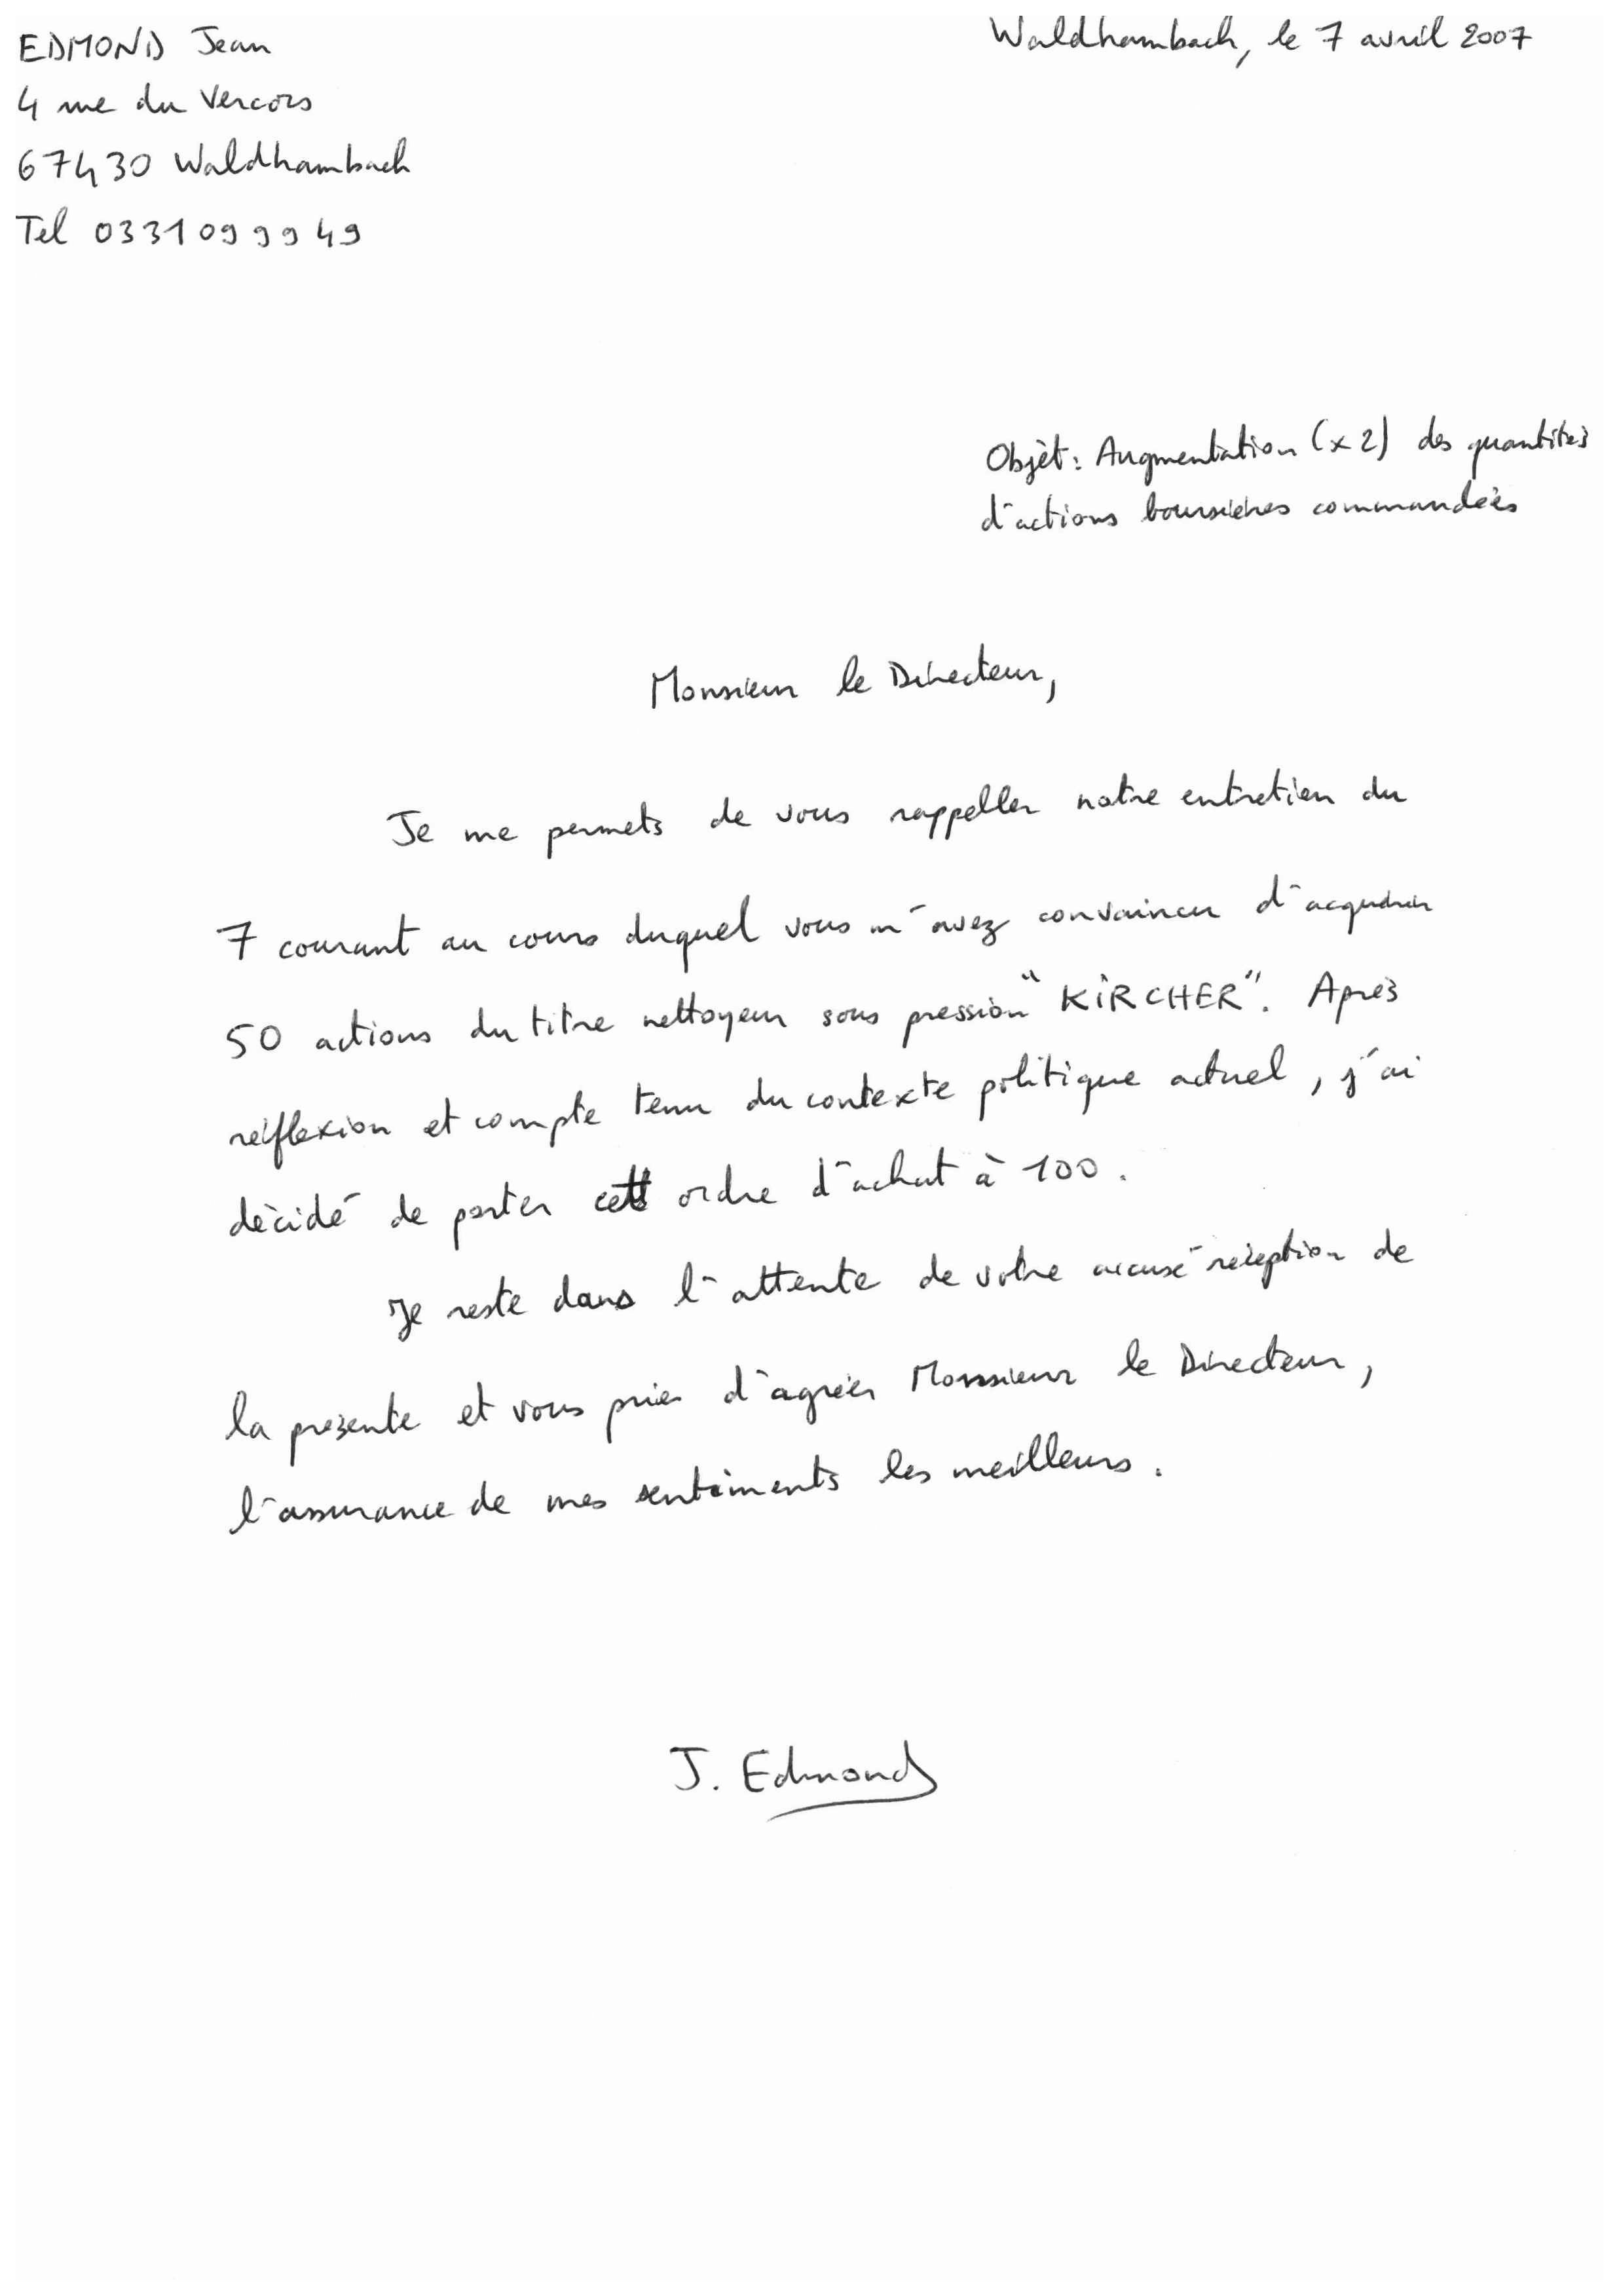 EDMOND Jean
4 rue du Vercors
67430 Waldhambach
Tel 0331099949
Waldhambach, le 7 avril 2007
Objèt: Augmentation (x2) des quantités
d'actions boursières commandées
Monsieur le Directeur,
Je me permets de vous rappeller notre entretien du
7 courant au cours duquel vous m'avez convaincu d'acquérir
50 actions du titre nettoyeur sous pression "KIRCHER". Après
réflexion et compte tenu du contexte politique actuel, j'ai
décidé de porter cet ordre d'achat à 100.
Je reste dans l'attente de votre accusé réception de
la présente et vous prie d'agréer Monsieur le Directeur,
l'assurance de mes sentiments les meilleurs.
J. Edmond